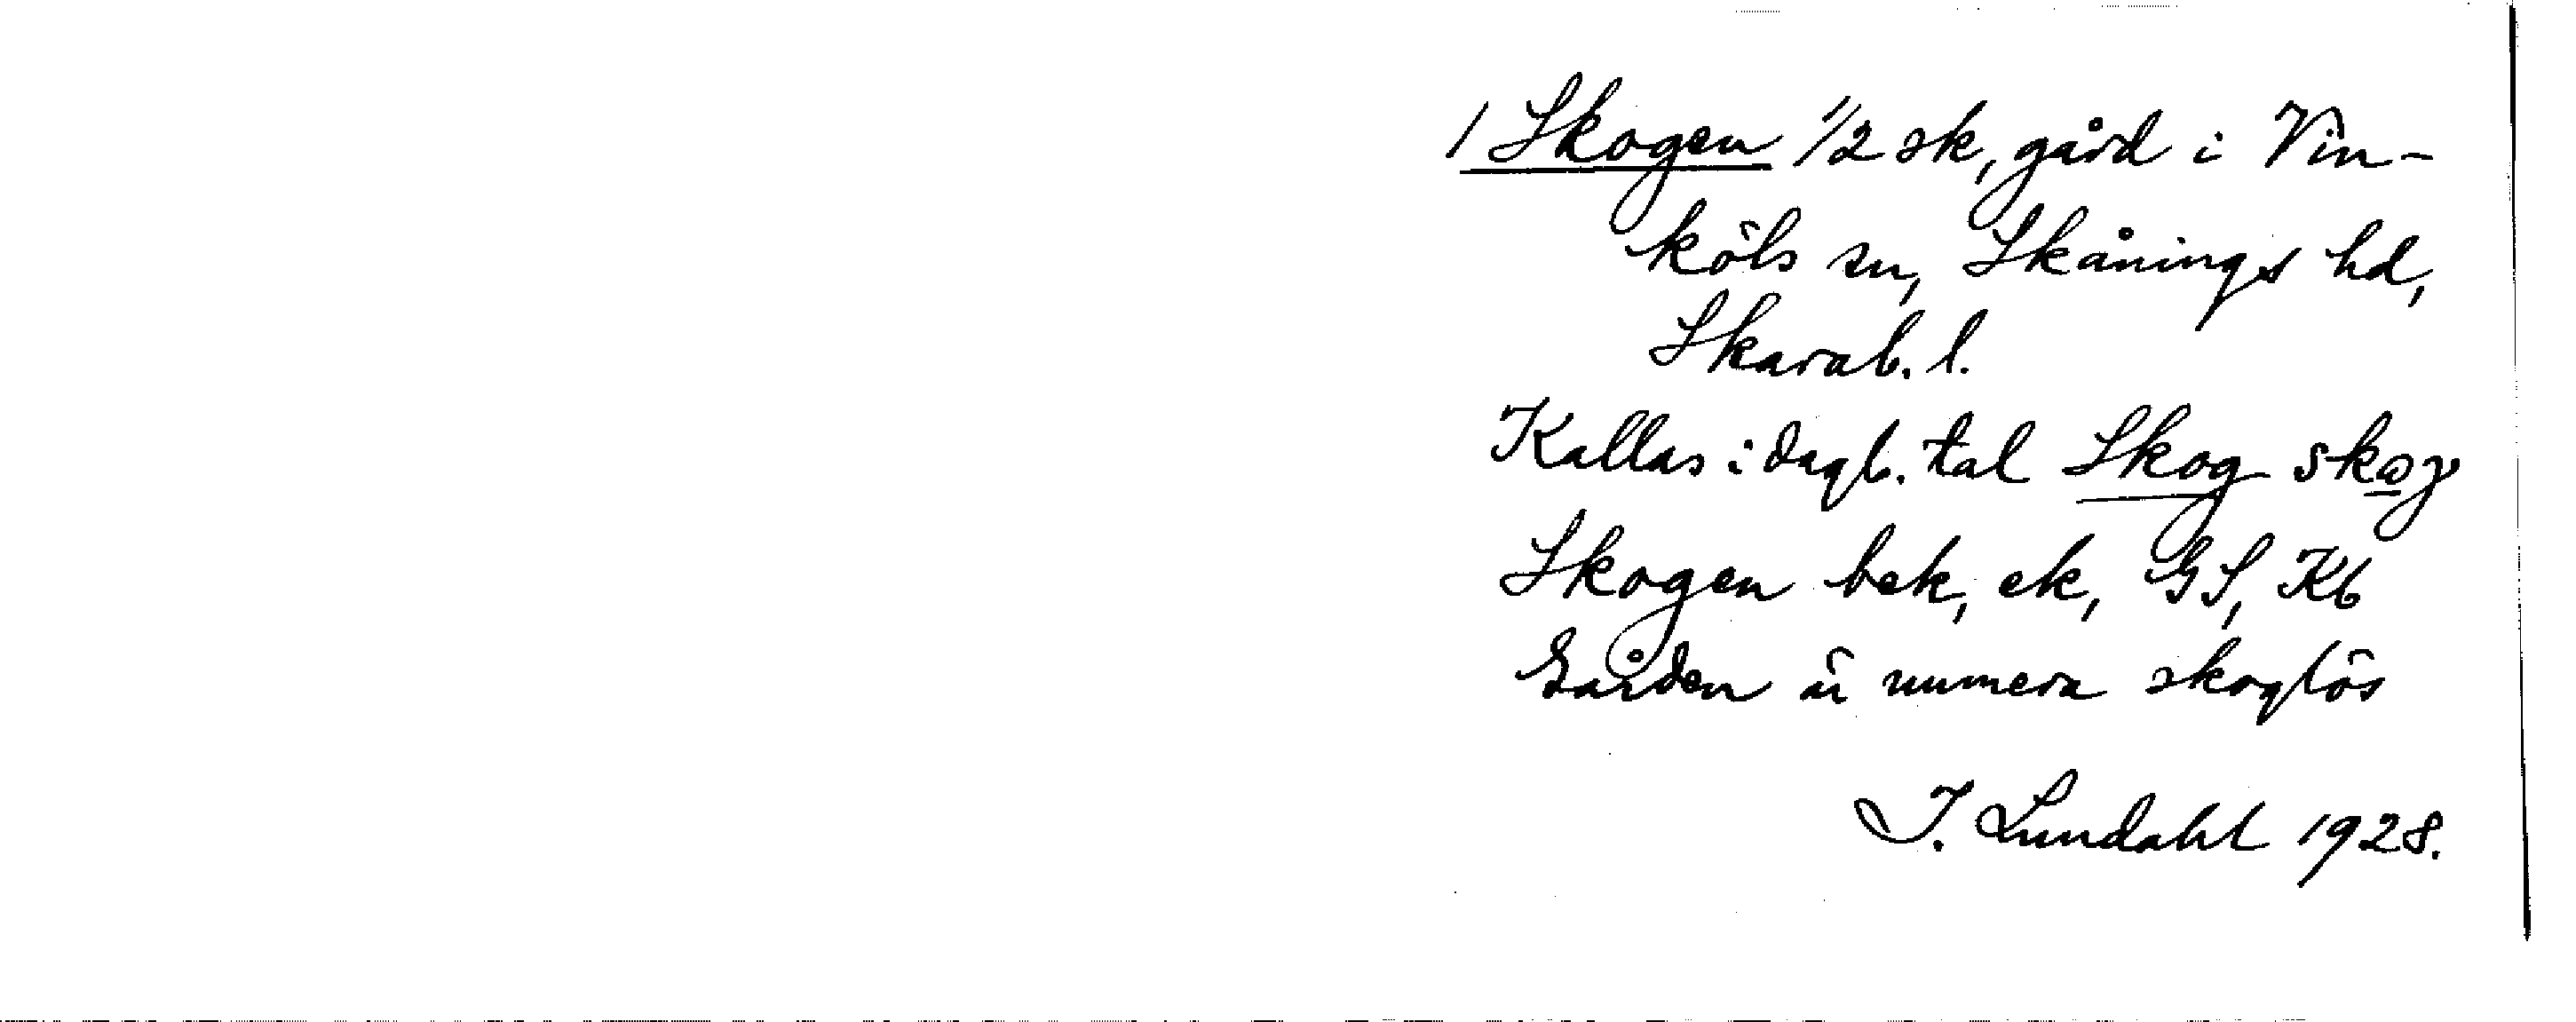 1 Skogen 1/2 sk, gård i Vin-
köls sn, Skånings hd,
Skarab. l.
Kallas i dagl. tal Skog skoγ
Skogen bek, ek, GS, Kb
Gården är numera skoglös
I. Lundahl 1928.